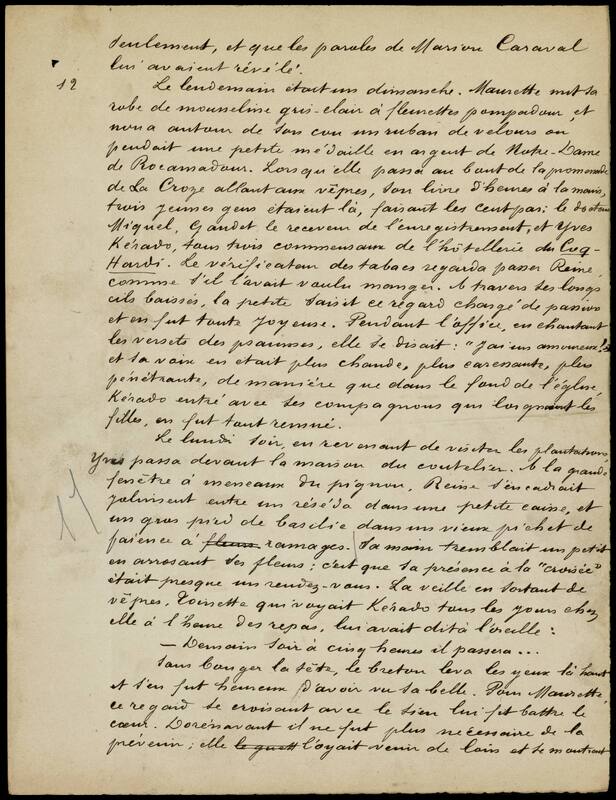 seulement, et que les paroles de Marion Caraval
lui avaient révélé.
12
Le lendemain était un dimanche. Maurette mit sa
robe de mousseline gris-clair à fleurettes pompadour, et
noua autour de son cou un ruban de velours où
pendait une petite médaille en argent de Notre-Dame
de Rocamadour. Lorsqu'elle passa au bout de la promenade
de La Croze allant aux vêpres, son livre d'heures à la main,
trois jeunes gens étaient là, faisant les cent pas: le docteur
Miquel, Gaudet le receveur de l'enregistrement, et Yves
Kérado, tous trois commensaux de l'hôtellerie du Coq-
Hardi. Le vérificateur des tabacs regarda passer Reine
comme s'il l'avait voulu manger. A travers ses longs
cils baissés, la petite saisit ce regard chargé de passion
et en fut toute joyeuse. Pendant l'office, en chantant
les versets des psaumes, elle se disait: "J'ai un amoureux!"
et sa voix en était plus chaude, plus caressante, plus
pénétrante, de manière que dans le fond de l'église,
Kérado entré avec ses compagnons qui lorgnaient les
filles, en fut tout remué.
Le lundi soir, en revenant de visiter les plantations,
Yves passa devant la maison du coutelier. A la grande
fenêtre à meneaux du pignon, Reine s'encadrait
joliment entre un réséda dans une petite caisse, et
17
un gros pied de basilic dans un vieux pichet de
faïence à fleurs ramages. Sa main tremblait un petit
en arrosant ses fleurs; c'est que sa présence à la "croisée"
était presque un rendez-vous. La veille en sortant de
vêpres, Toinette qui voyait Kérado tous les jours chez
elle à l'heure des repas, lui avait dit à l'oreille:
— Demain soir à cinq heures il passera...
Sans bouger la tête, le breton leva les yeux là-haut
et s'en fut heureux d'avoir vu sa belle. Pour Maurette,
ce regard se croisant avec le sien lui fit battre le
cœur. Dorénavant il ne fut plus nécessaire de la
prévenir; elle le guett l'oyait venir de loin et se montrait